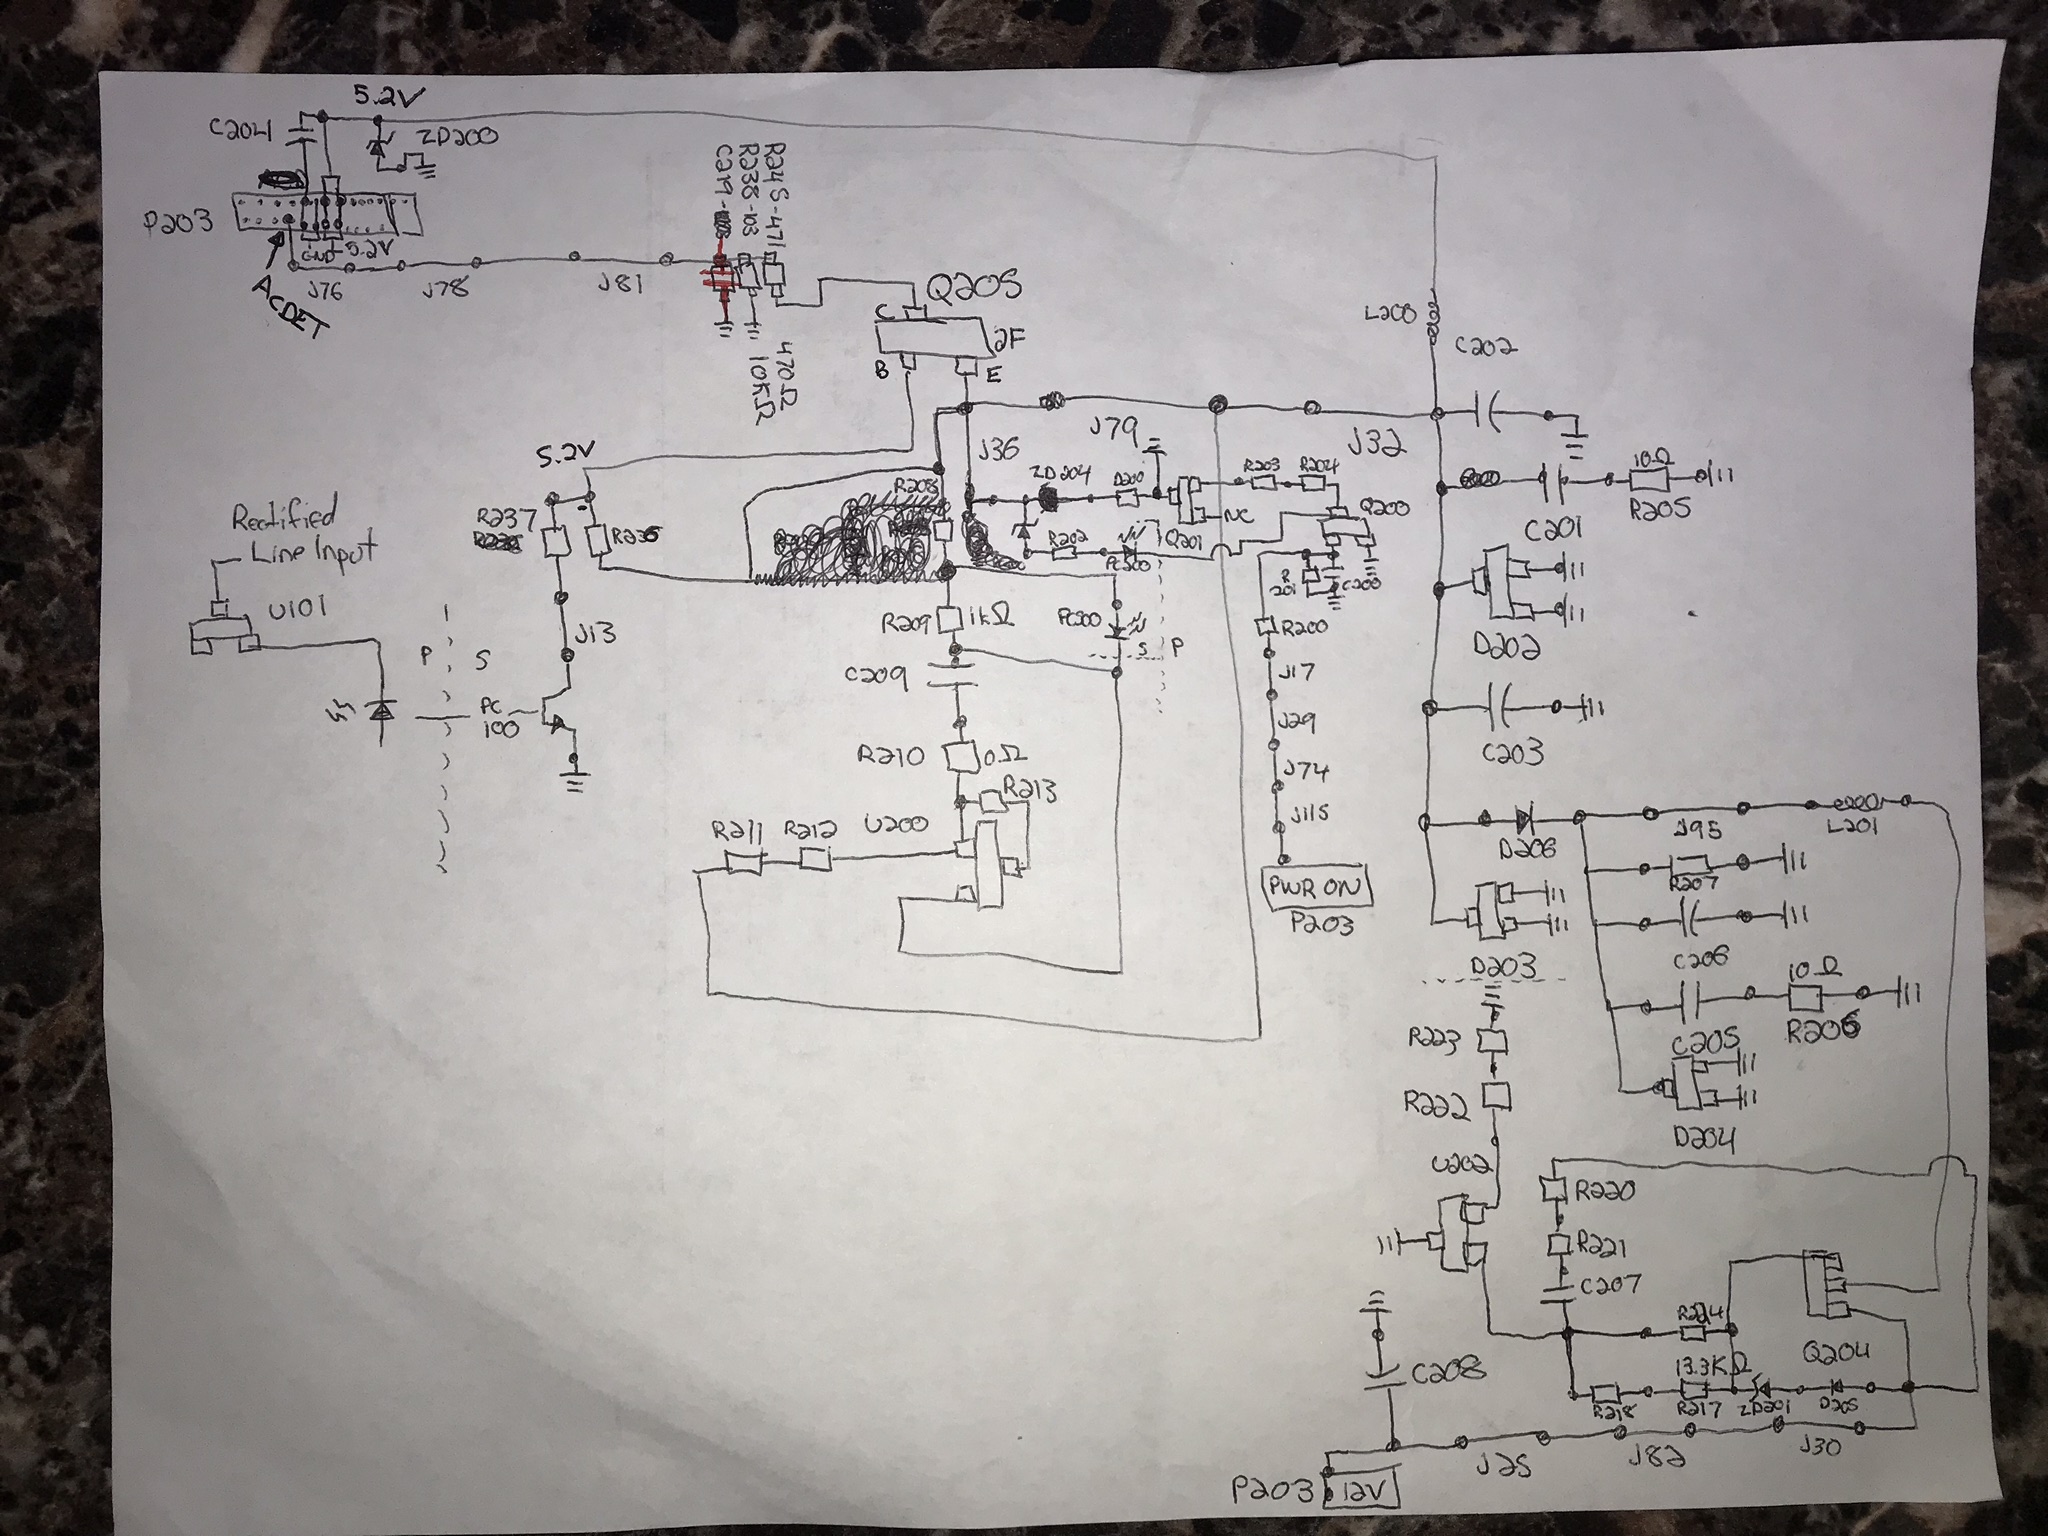 5.2V
C204
ZD200
P203
GND
5.2V
ACDET
J76
J78
J81
C219-
R238-103
R245-471
10KΩ
470Ω
Q205
C
2F
B
E
L200
C202
J36
J79
J32
5.2V
R237
R236
R208
ZD204
D200
R203
R204
Q200
NC
Q201
R202
PC500
R201
C200
10Ω
R205
C201
Rectified
Line Input
U101
J13
P
S
PC
100
R209
1kΩ
PC200
S
P
R200
J17
J29
J74
J115
PWR ON
P203
C209
R210
0Ω
R213
R211
R212
U200
D202
C203
D206
J95
L201
R207
C206
10Ω
R206
C205
D204
D203
R223
R222
U202
R220
R221
C207
R224
13.3KΩ
Q204
R218
R217
ZD201
D205
C208
J25
J82
J30
P203
12V